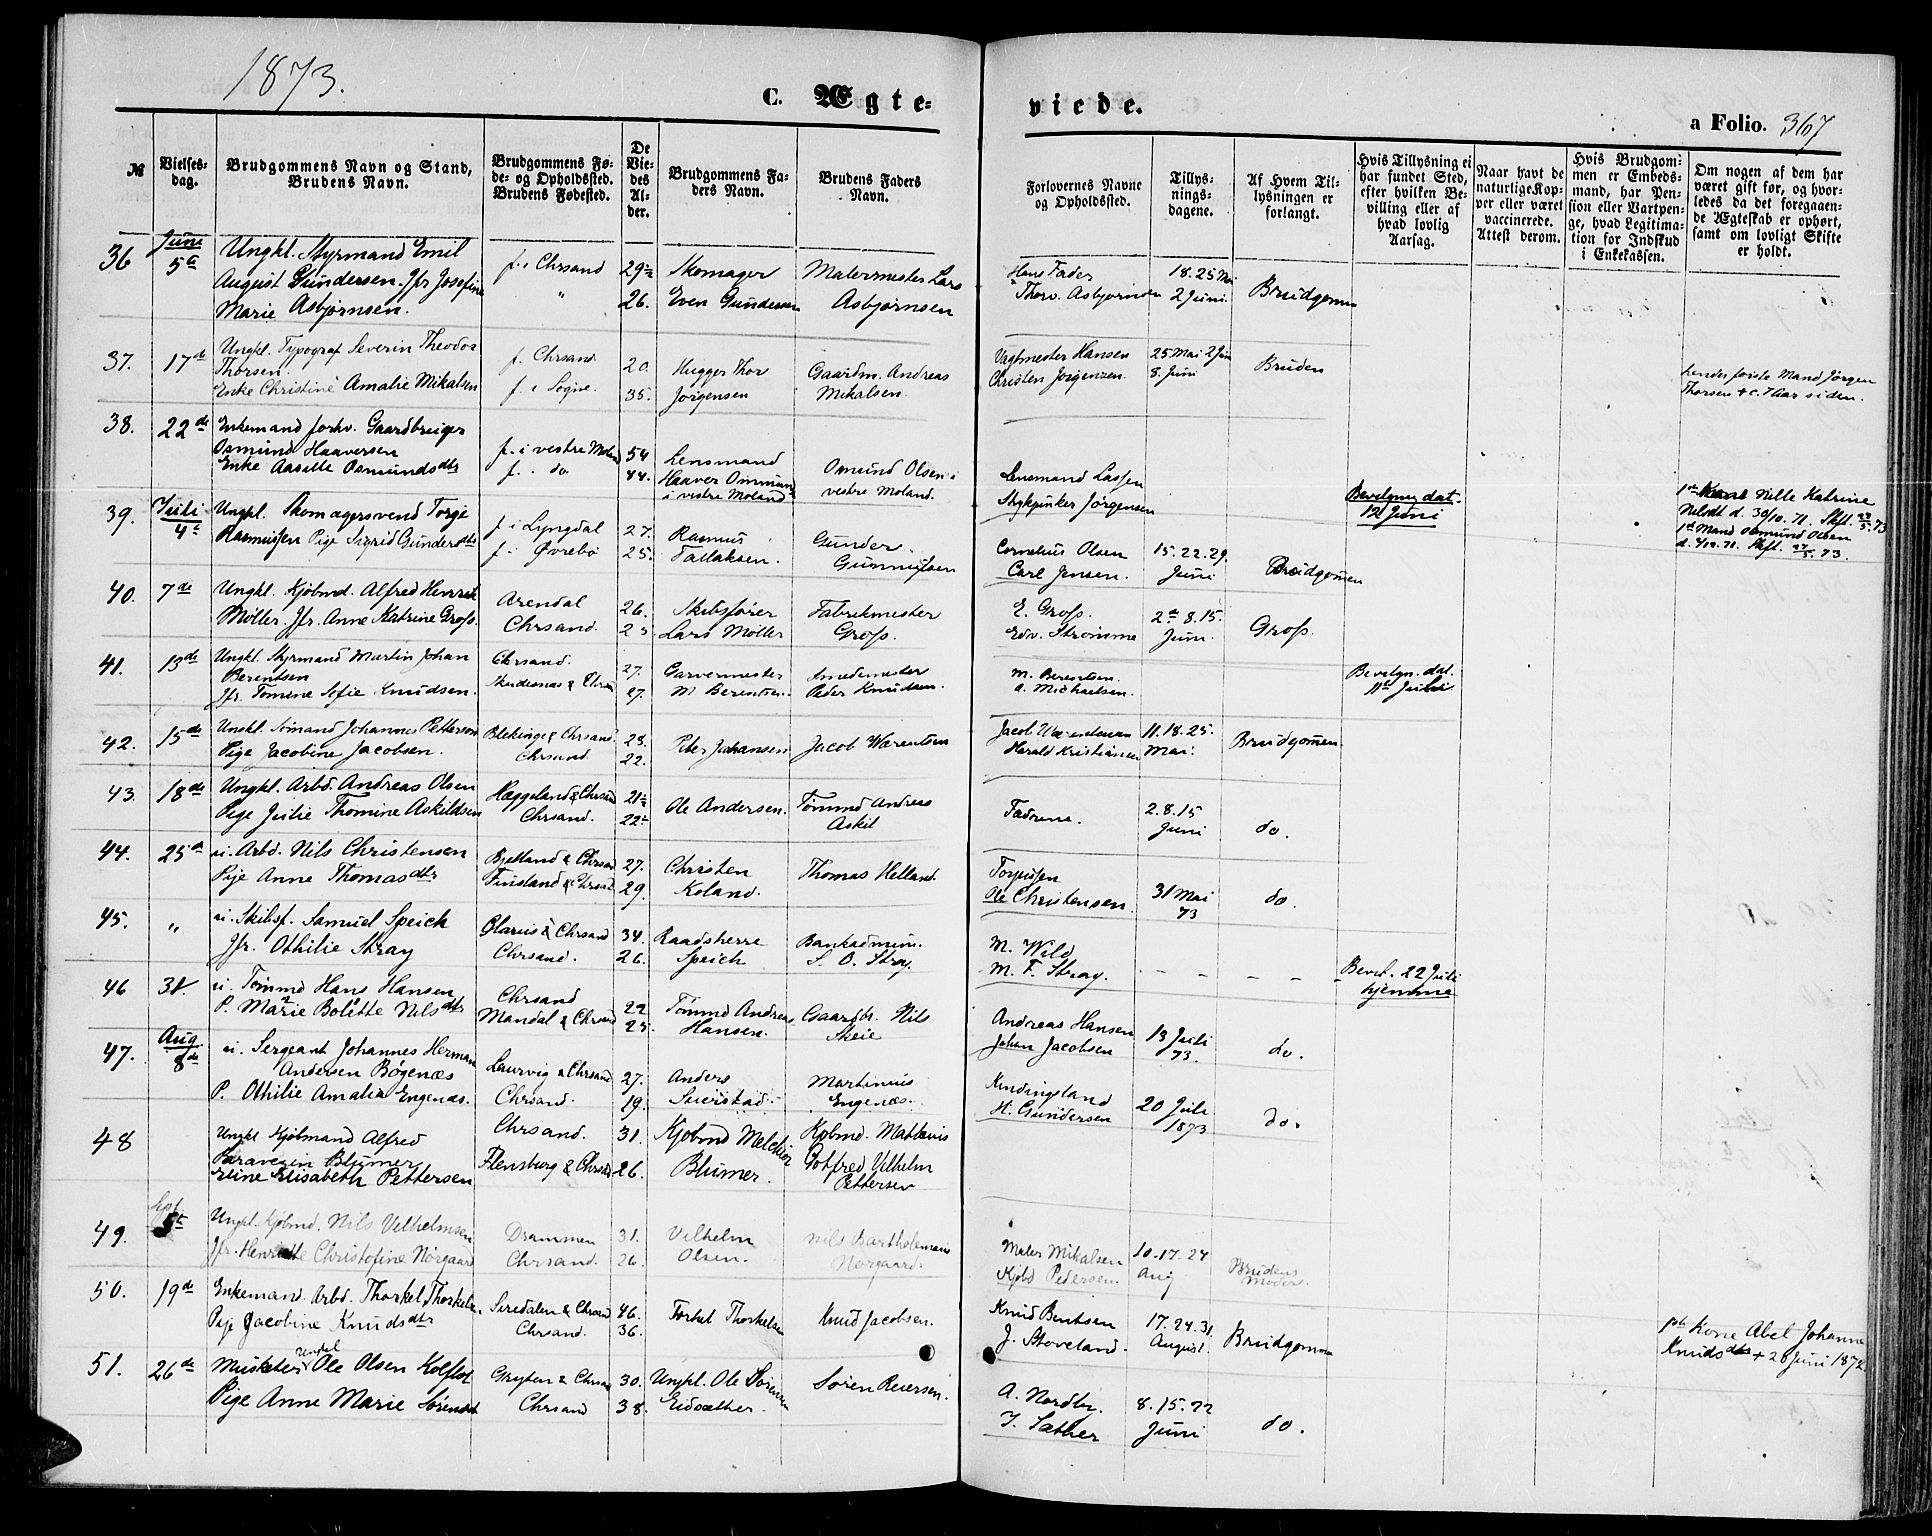 1873.
C. Ægte-
viede.
a Folio. 367
№
Vielses-
dag.
Brudgommens Navn og Stand,
Brudens Navn.
Brudgommens Fø-
de- og Opholdssted.
Brudens Fødested.
De
Vie-
des
Al-
der.
Brudgommens Fa-
ders Navn.
Brudens Faders
Navn.
Forlovernes Navne
og Opholdssted.
Tillys-
nings-
dagene.
Af Hvem Til-
lysningen er
forlangt.
Hvis Tillysning ei
har fundet Sted,
efter hvilken Be-
villing eller af
hvad lovlig
Aarsag.
Naar havt de
naturlige Kop-
per eller været
vaccinerede.
Attest derom.
Hvis Brudgom-
men er Embeds-
mand, har Pen-
sion eller Vartpen-
ge, hvad Legitima-
tion for Indskud
i Enkekassen.
Om nogen af dem har
været gift før, og hvor-
ledes da det foregaaen-
de Ægteskab er ophørt,
samt om lovligt Skifte
er holdt.
36 Juni 5te Ungkl. Styrmand Emil f. i Chrsand 29 Skomager Malermester Lars Hans Fader 18. 25 Mai
August Gundersen. Jfr Josefine " 26. Even Gundersen Asbjørnsen Thorv. Asbjørnsen 2 Juni Brudgommen
Marie Asbjørnsen.
37. 17de Ungkl. Typograf Severin Theodor f. Chrsand 20. Hugger Thor Gaardm. Andreas Vagtmester Hansen 25 Mai 2 Juni Bruden
Thorsen. Jörgensen Mikalsen. Christen Jørgensen. 8. Juni hendes første Mand Jørgen
Enke Christine Amalie Mikalsen f. i Søgne. 35. Thorsen + c. 7 Aar siden.
38. 22de Enkemand forhv. Gaardbruger
Osmund Haaversen f. i vestre Moland 54 Lensmand Omund Olsen i Lensmand Lassen
Enke Aaselle Osmundsdtr f. do 44. Haaver Ommunds vestre Moland. Stykjunker Jørgensen Bevilgning dat. 12 Juni
i vestre Moland 1ste Kone Nille Katrine
d. 30/10. 71. Skft. 27/5. 73
1st Mand Osmund Olsen
39. Juli 4de Ungkl. Skomagersvend Torge f. i Lyngdal 27. Rasmus Gunder Cornelius Olsen 15. 22. 29.
Rasmussen Pige Sigrid Gundersdtr f. Øvrebø 25. Tallaksen. Gunnufsen Carl Jensen. Juni Brudgommen
40. 7de Ungkl. Kjöbmd. Alfred Henrik Arendal 26. Skibsfører Fabrikmester E. Gross. 2de 8. 15. Gross.
Möller. Jfr. Anne Katrine Gross. Chrsand. 25. Lars Möller Gross. Edv. Strömme Juni.
41. 13de Ungkl. Styrmand Martin Johan Chrsand. 27. Garvermester Smedemester M. Berentsen. Bevilgn. dat.
Berentsen 11te Juli
Jfr. Tomine Sofie Knudsen. 27. M Berentsen. Peder Knudsen. A. Michaelsen.
42. 15de Ungkl. Sömand Johannes Pettersen Blekinge & Chrsand. 23. Peter Johansen Jacob Wærentsen 11. 18. 25. Brudgommen.
Pige Jacobine Jacobsen. Chrsand 22. Harald Kristiansen Mai.
43. 18de Ungkl. Arbd. Andreas Olsen Hæggeland & Chrsand 21 Ole Andersen. Tømmd Andreas Fædrene. 2. 8. 15 do.
Pige Julie Thomine Askildsen Chrsand. 22 Askil Juni
44. 25de u. Arbd. Nils Christensen Bjelland & Chrsand 27. Christen Thomas Helland. 31 Mai do.
Pige Anne Thomasdtr Finsland & Chrsand 29. Koland. Ole Christensen 73
45. " u. Skibsf. Samuel Speich Glarus & Chrsand 34. Raadsherre Bankadmin. M. Wild
Jfr. Othilie Stray Chrsand. 26. Speich S. O. Stray. M. F. Stray. - - - - Bevil. 22 Juli
hjemme
46 31. u. Tømmd Hans Hansen Chrsand 22 Tømmd Andreas Gaardbr. Nils Andreas Hansen 13 Juli do.
P. Marie Bolette Nilsdtr Mandal & Chrsand 25. Hansen. Skeie Johan Jacobsen 73.
47. Aug. 8de u. Sergeant Johannes Herman Laurvig & Chrsand 27. Anders Martinius 20 Juli do.
Andersen Bøgenæs
P. Othilie Amalia Engenæs. Chrsand. 19. Engenæs. H. Gundersen 1873
48 Ungkl Kjøbmand Alfred Chrsand. 31. Kjøbmd Melchior Kjøbmd. Mattævis
Paravezin Blumer Flensburg & Chrsand 26. Blumer. Gotfred Vilhelm
Eline Elisabeth Pettersen Pettersen
49. Sept. 5te Ungkl. Kjøbmd. Nils Velhelmsen Drammen 31. Velhelm Nils Bartholemæus Maler Mikalsen 10. 17. 24 Brudens
Jfr. Henriette Christofine Nørgaard Chrsand. 26. Olsen. Nørgaard. Kjöbd Pedersen. Aug Moder.
50. 19de Enkemand. Arbd. Thorkel Thorkelsen Siredalen & Chrsand 46. Torkel Thorkelsen Knud Jacobsen. Knud Bentsen 17. 24. 31. Brudgommen
Pige Jacobine Knudsdtr Chrsand. 36. J. Stoveland. August. 1ste Kone Abel Johanne
Knudsdtr + 20 Juni 1872
51. 26de Musketer Ungkl Ole Olsen Gryten & Chrsand 30. Ungkl. Ole Sören Reiersen. A. Nordby. 8. 15. 22 do.
Pige Anne Marie Sörensdtr Chrsand 38. Eidsæther. J. Sæther Juni